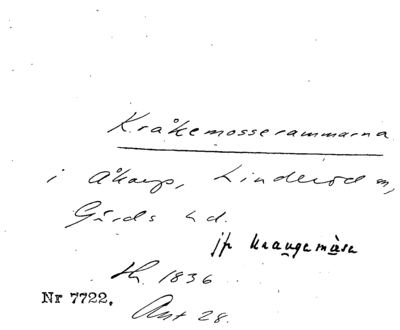 Kråkemosserammarna
i Åkarp, Linderöd sn,
Gärds hd.
jfr kraugamåsa
th. 1836
Nr 7722.
Ant 28.